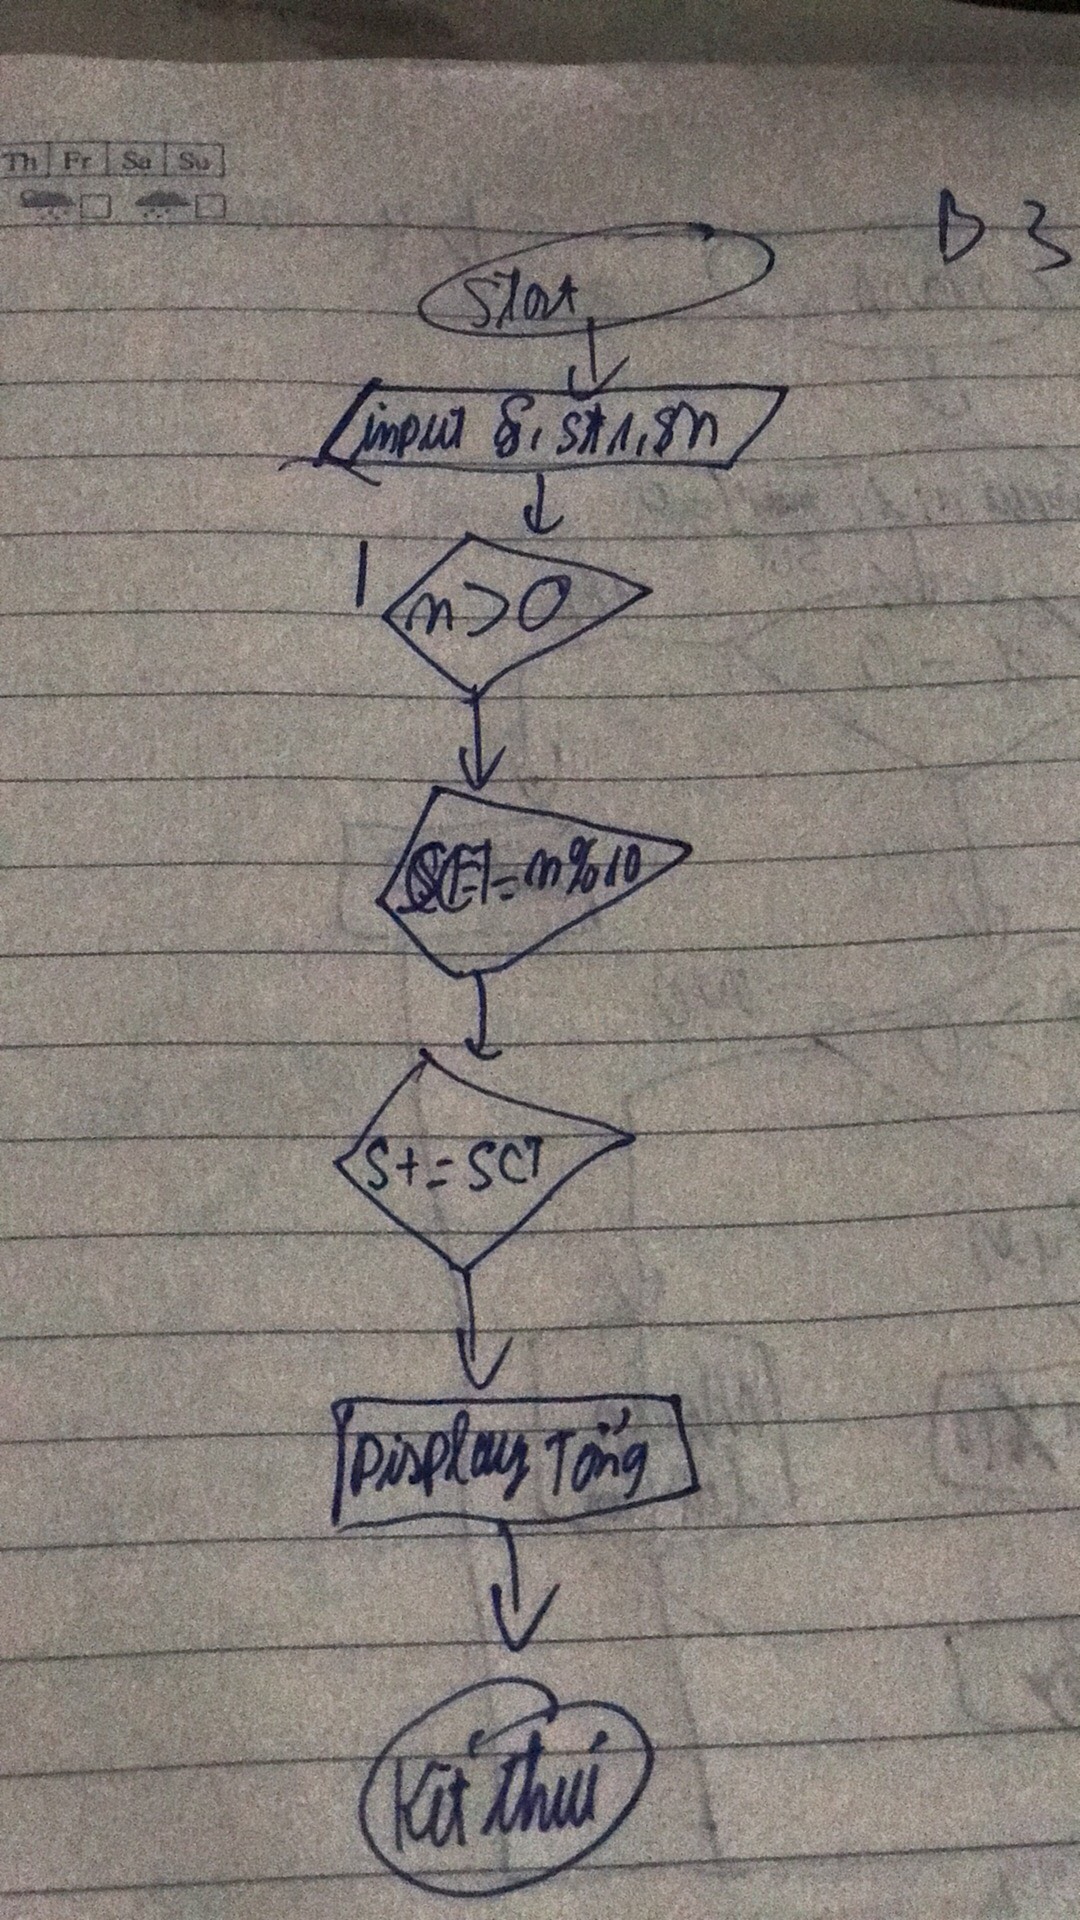 Th Fr Sa Su
B 3
Start
input S, SA1, Sn
1
n>0
SCT=n%10
S+=SCT
Display Tổng
Kết thúc